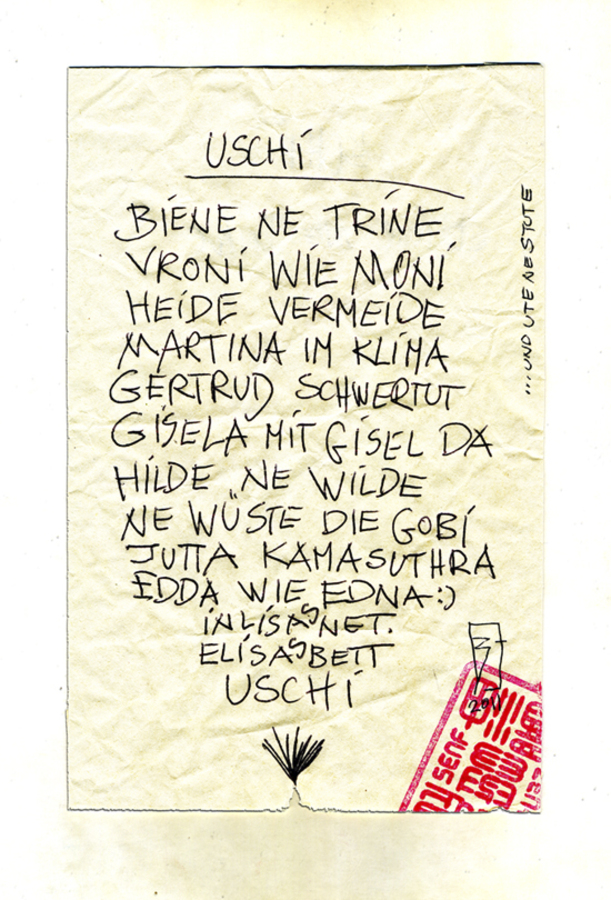 USCHI
BIENE NE TRINE
VRONI WIE MONI
HEIDE VERMEIDE
MARTINA IM KLIMA
GERTRUD SCHWERTUT
GISELA MIT GISEL DA
HILDE NE WILDE
NE WÜSTE DIE GOBI
JUTTA KAMASUTHRA
EDDA WIE EDNA :)
IN LISAS NET.
ELISASBETT
USCHI
...UND UTE NE STUTE
SENF